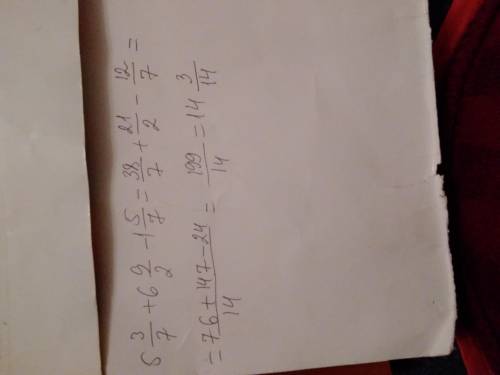 5 3/7 + 6 9/2 - 1 5/7 = 38/7 + 21/2 - 12/7 =
= 76 + 147 - 24/14 = 199/14 = 14 3/14